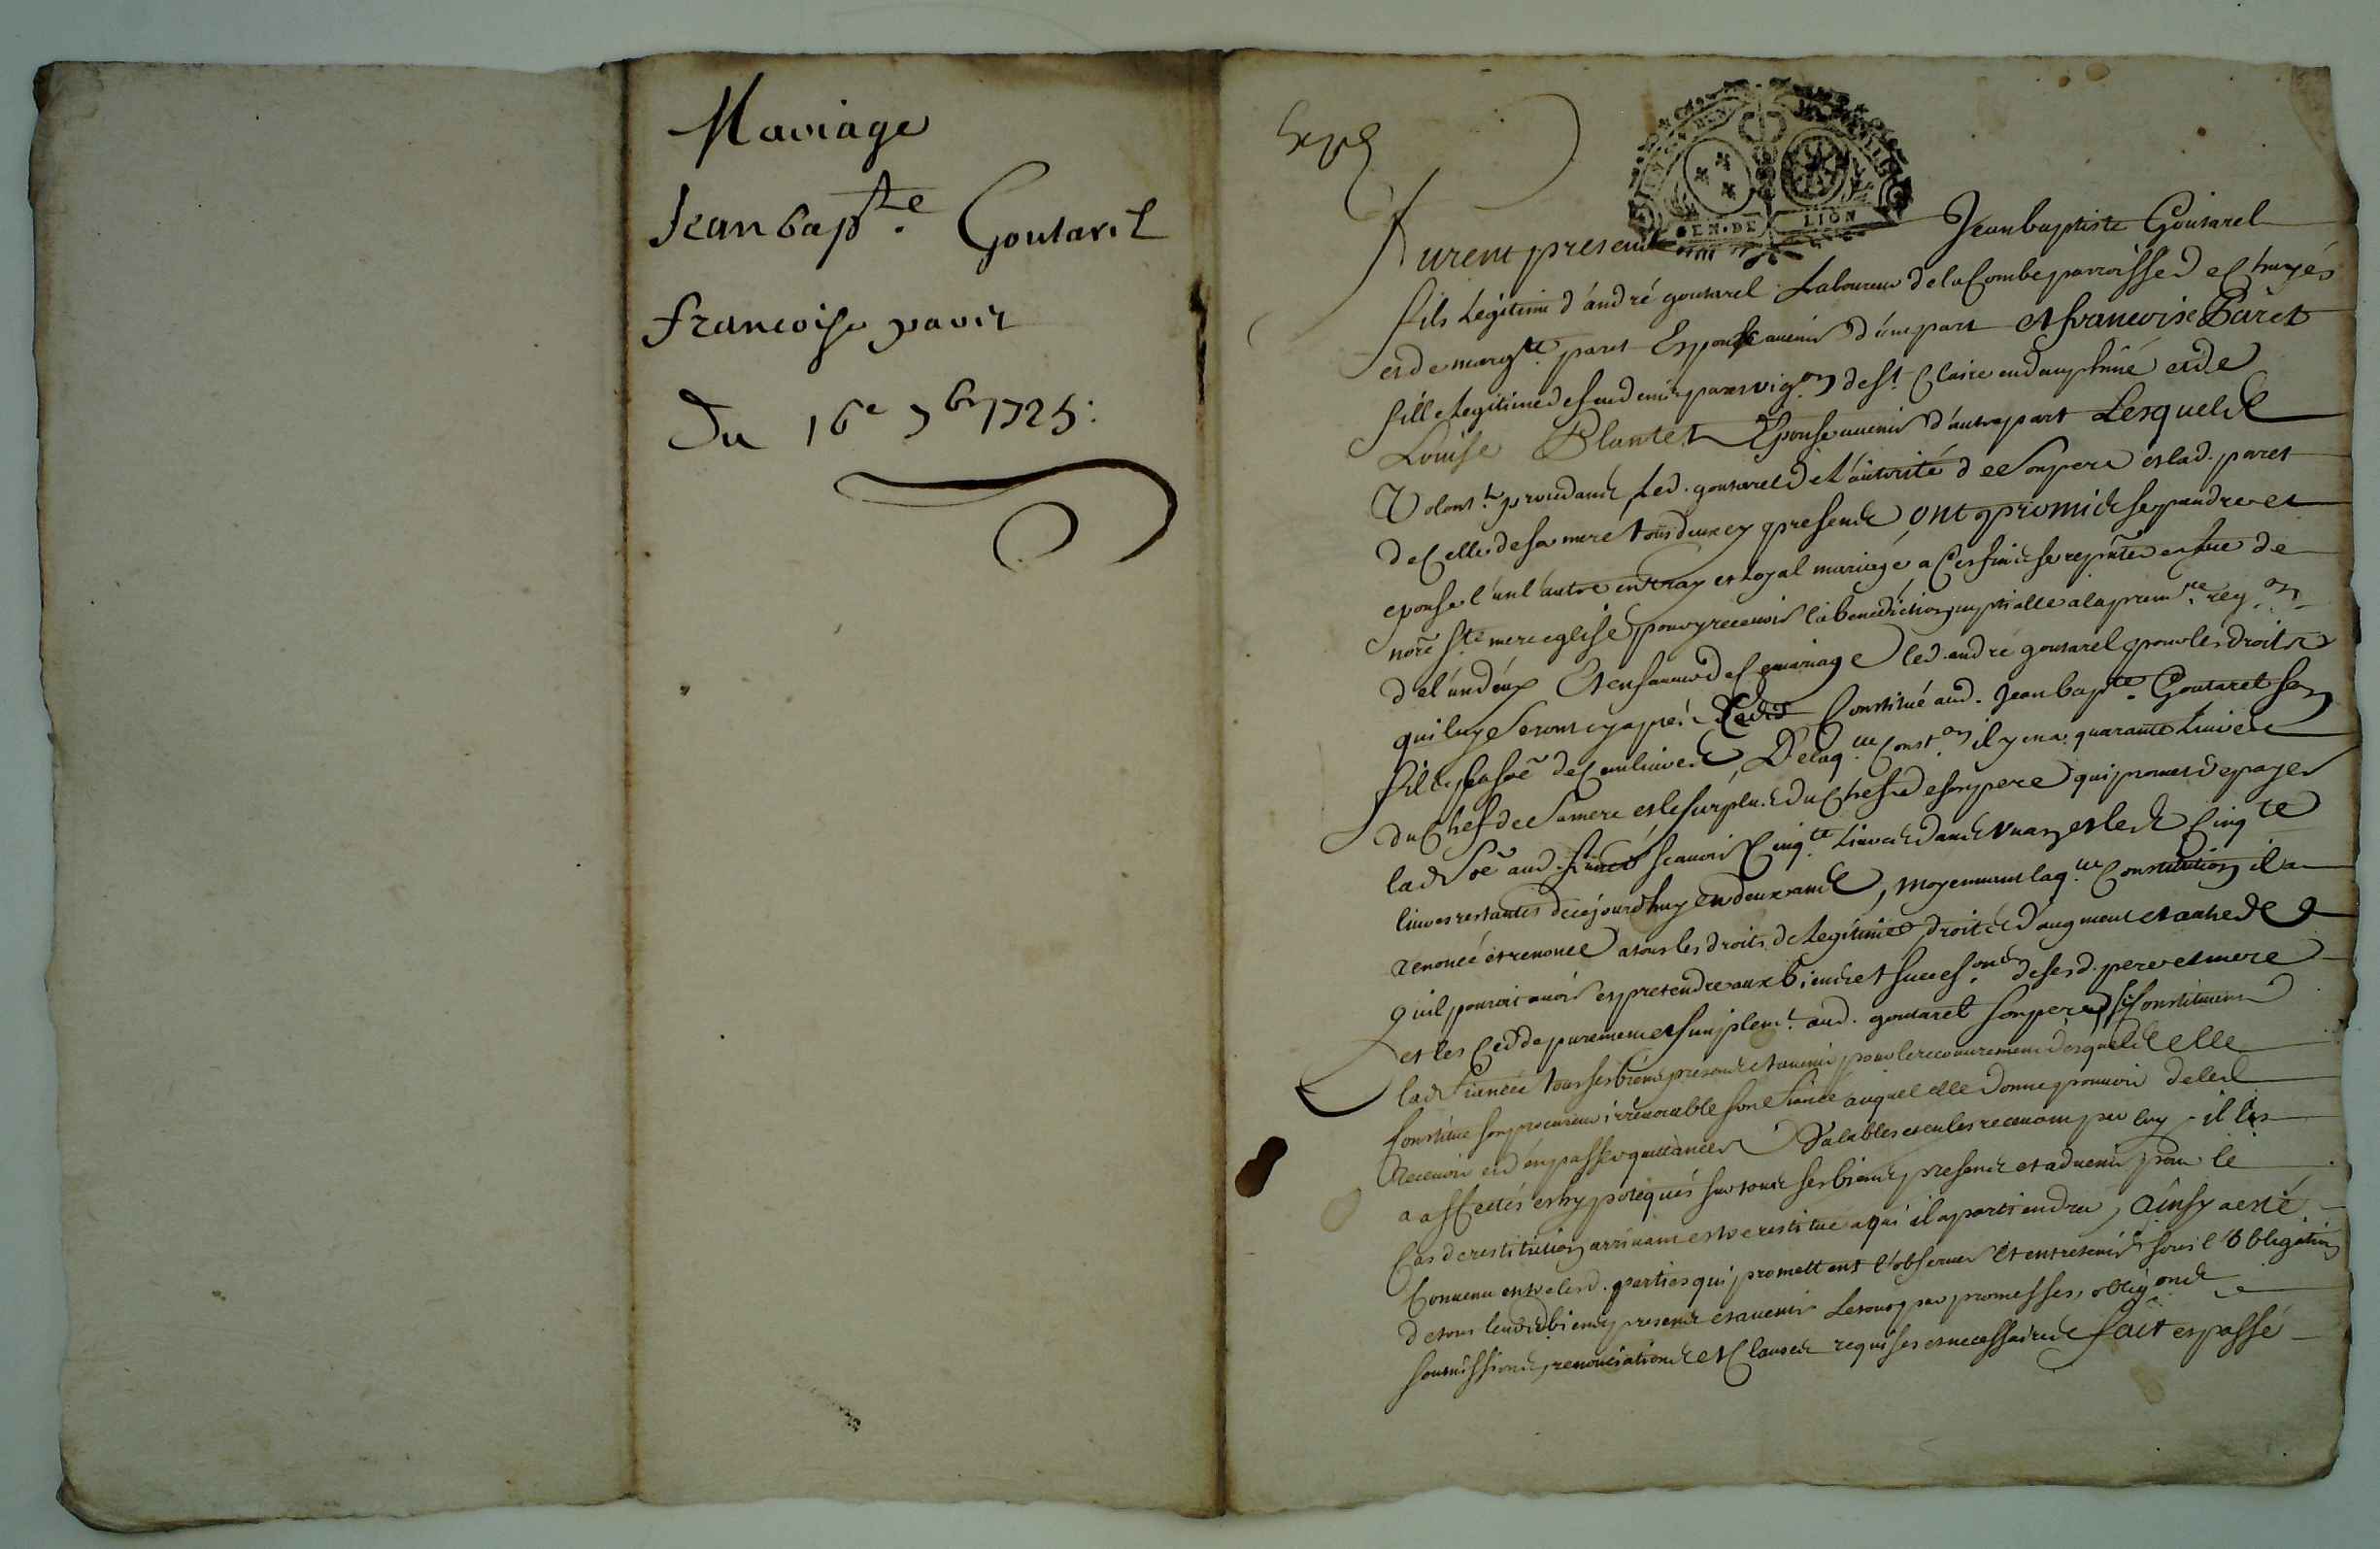 Mariage
Jean bap.te Goutarel
francoise paret
Du 16e 7br 1725.
Expé
GEN. DE LION
Furent presents Jean baptiste Goutarel
fils Legitime d'andré goutarel Laboureur de la Combe parroisse d'echugés
et de marg.te paret Espoux avenir d'une part et francoise Paret
fille legitime de feu paret vig.on de St Claire en dauphiné et de
Louise Plantet Epouse avenir d'autre part Lesquels
Volont.t procedants led. goutarel de l'autorité de Son pere et lad. paret
de Celle de sa mere tous deux cy presents, ont promis se prendre et
epouser l'un l'autre en vray et loyal mariage, a Ces fins se repnter en fue de
nore Ste mere eglise pour y recevoir la benediction nuptialle a la prem.re req.on
de l'un d'eux Et en faveur de Ce mariage led. andré goutarel pour les droits
qui luy seront cy apres Cedés Constitué aud. Jean bap.te Goutarel son
fils la soê de Cent livres, De laq.lle Const.on il y en a quarante Livres
du Chef de Sa mere et le surplus du Chef de son pere qui promet de payer
lad. Soê aud. fiancé scavoir Cinq.te Livres dans un an et les Cinq.te
livres restantes de cejourdhuy en deux ans, moyennant laq.lle Constitution il a
renoncé et renonce a tous les droits de Legitime, droits d'augment et autres
qu'il pouroit avoir et pretendre aux biens et succes.ons de sesd. pere et mere
et les Cedde purement et simplem.t aud. goutarel son pere, se Constituant
lad. fiancée tous ses biens presents et avenir pour le recouvrement desquels elle
Constitue son procureur irrevocable sond. fiancé auquel elle donne pouvoir de les
Recevoir et d'en passer quittances Valables et en les recevant par luy il les
a affectés et hypotequés sur tous ses biens presents et advenir pour le
Cas de restitution arrivant estre restitué a qui il apartiendra, Ainsy a esté
Convenu entre lesd. parties qui promettent l'observer Et entretenir sous l'Obligation
de tous leursd. biens presents et avenir Le tout par promesses, oblig.ons
soumissions, renonciations et Clauses requises et necessaires fait et passé